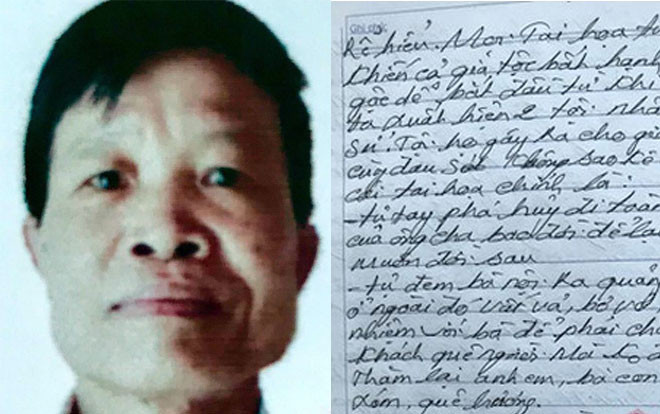 Ghi chú
Rẽ hiểu. Mọi Tai họa từ
khiến cả gia tộc bất hạnh
gốc dễ bắt đầu từ khi
ta xuất hiện 2 tội nhâ
sử. Tội họ gây ra cho gia
cùng đau sót không sao kể
cái tai họa chính là:
- tự tay phá hủy đi toàn
của ông cha bao đời để lại
Muôn đời sau
- tự đem bà nội ra quản
ở ngoài đó vất vả, bơ vơ,
nhiệm với bà để phải cha
khách quê người Mà ko
Thăm lại anh em, bà con
xóm, quê hương.